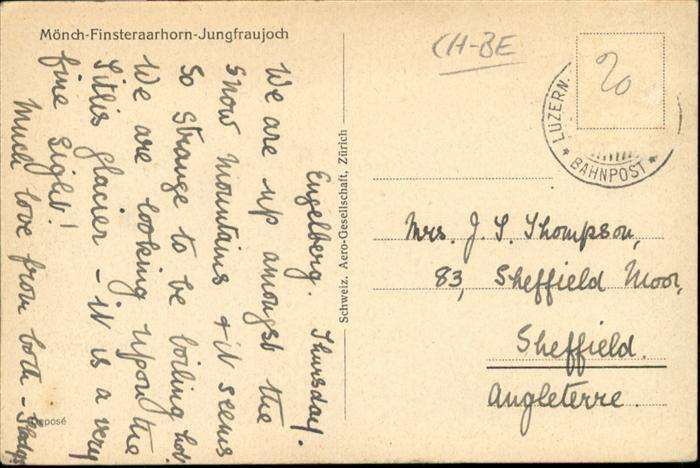 Mönch-Finsteraarhorn-Jungfraujoch
Engelberg. Thursday.
We are up amongst the
snow mountains & it seems
so strange to be boiling hot.
We are looking upon the
Titlis glacier - it is a very
fine sight!
Much love from both -
Schweiz. Aero-Gesellschaft, Zürich
CH-BE
20
LUZERN.
* BAHNPOST *
Mrs. J. S. Thompson,
83, Sheffield Moor,
Sheffield.
Angleterre.